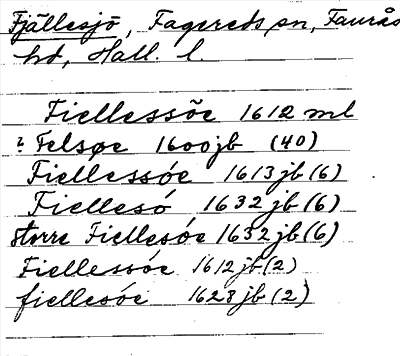 Fjällesjö, Fagereds sn, Faurås
hd, Hall. l.
Fiellessöe 1612 ml
? Felsøe 1600 jb (40)
Fiellessóe 1613 jb (6)
Fiellesó 1632 jb (6)
större Fiellesóe 1632 jb (6)
Fiellessóe 1612 jb (2)
fiellesóe 1628 jb (2)